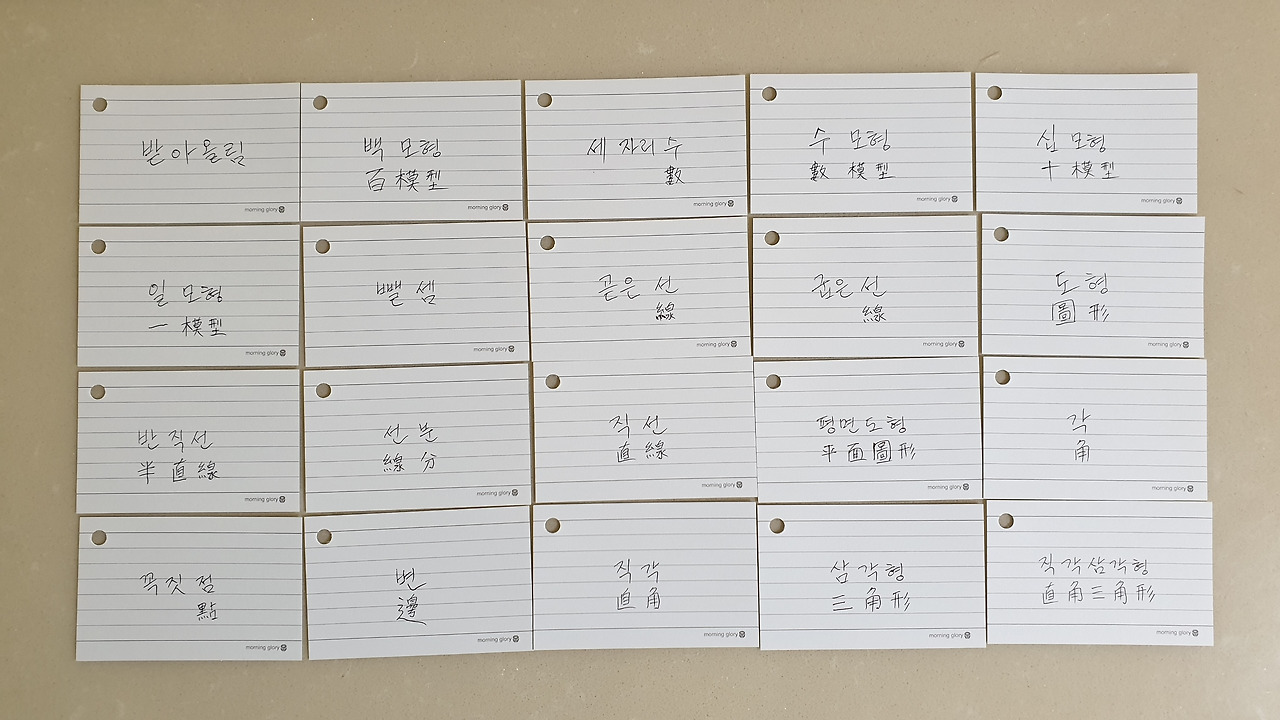 받아올림
morning glory
백 모형
百模型
morning glory
세 자리 수
數
morning glory
수 모형
數 模型
morning glory
십 모형
十 模型
morning glory
일 모형
一 模型
morning glory
뺄셈
morning glory
곧은 선
線
morning glory
굽은 선
線
morning glory
도형
圖形
morning glory
반직선
半直線
morning glory
선분
線分
morning glory
직선
直線
morning glory
평면도형
平面圖形
morning glory
각
角
morning glory
꼭짓점
點
morning glory
변
邊
morning glory
직각
直角
morning glory
삼각형
三角形
morning glory
직각삼각형
直角三角形
morning glory